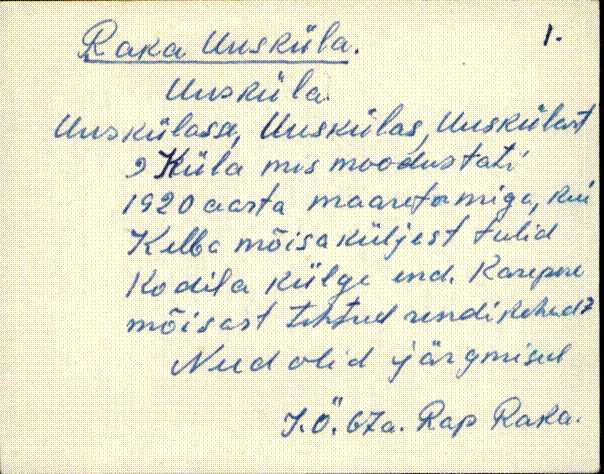 Raka Uusküla. 1.
Uusküla.
Uuskülasse, Uuskülas, Uuskülast
Küla mis moodustati
1920 aasta maareformiga, kui
mõisa küljest tulid
Kodila külge end.
mõisast tehtud rendikohad
Need olid järgmised
J.Ö. 67a. Rap Raka.